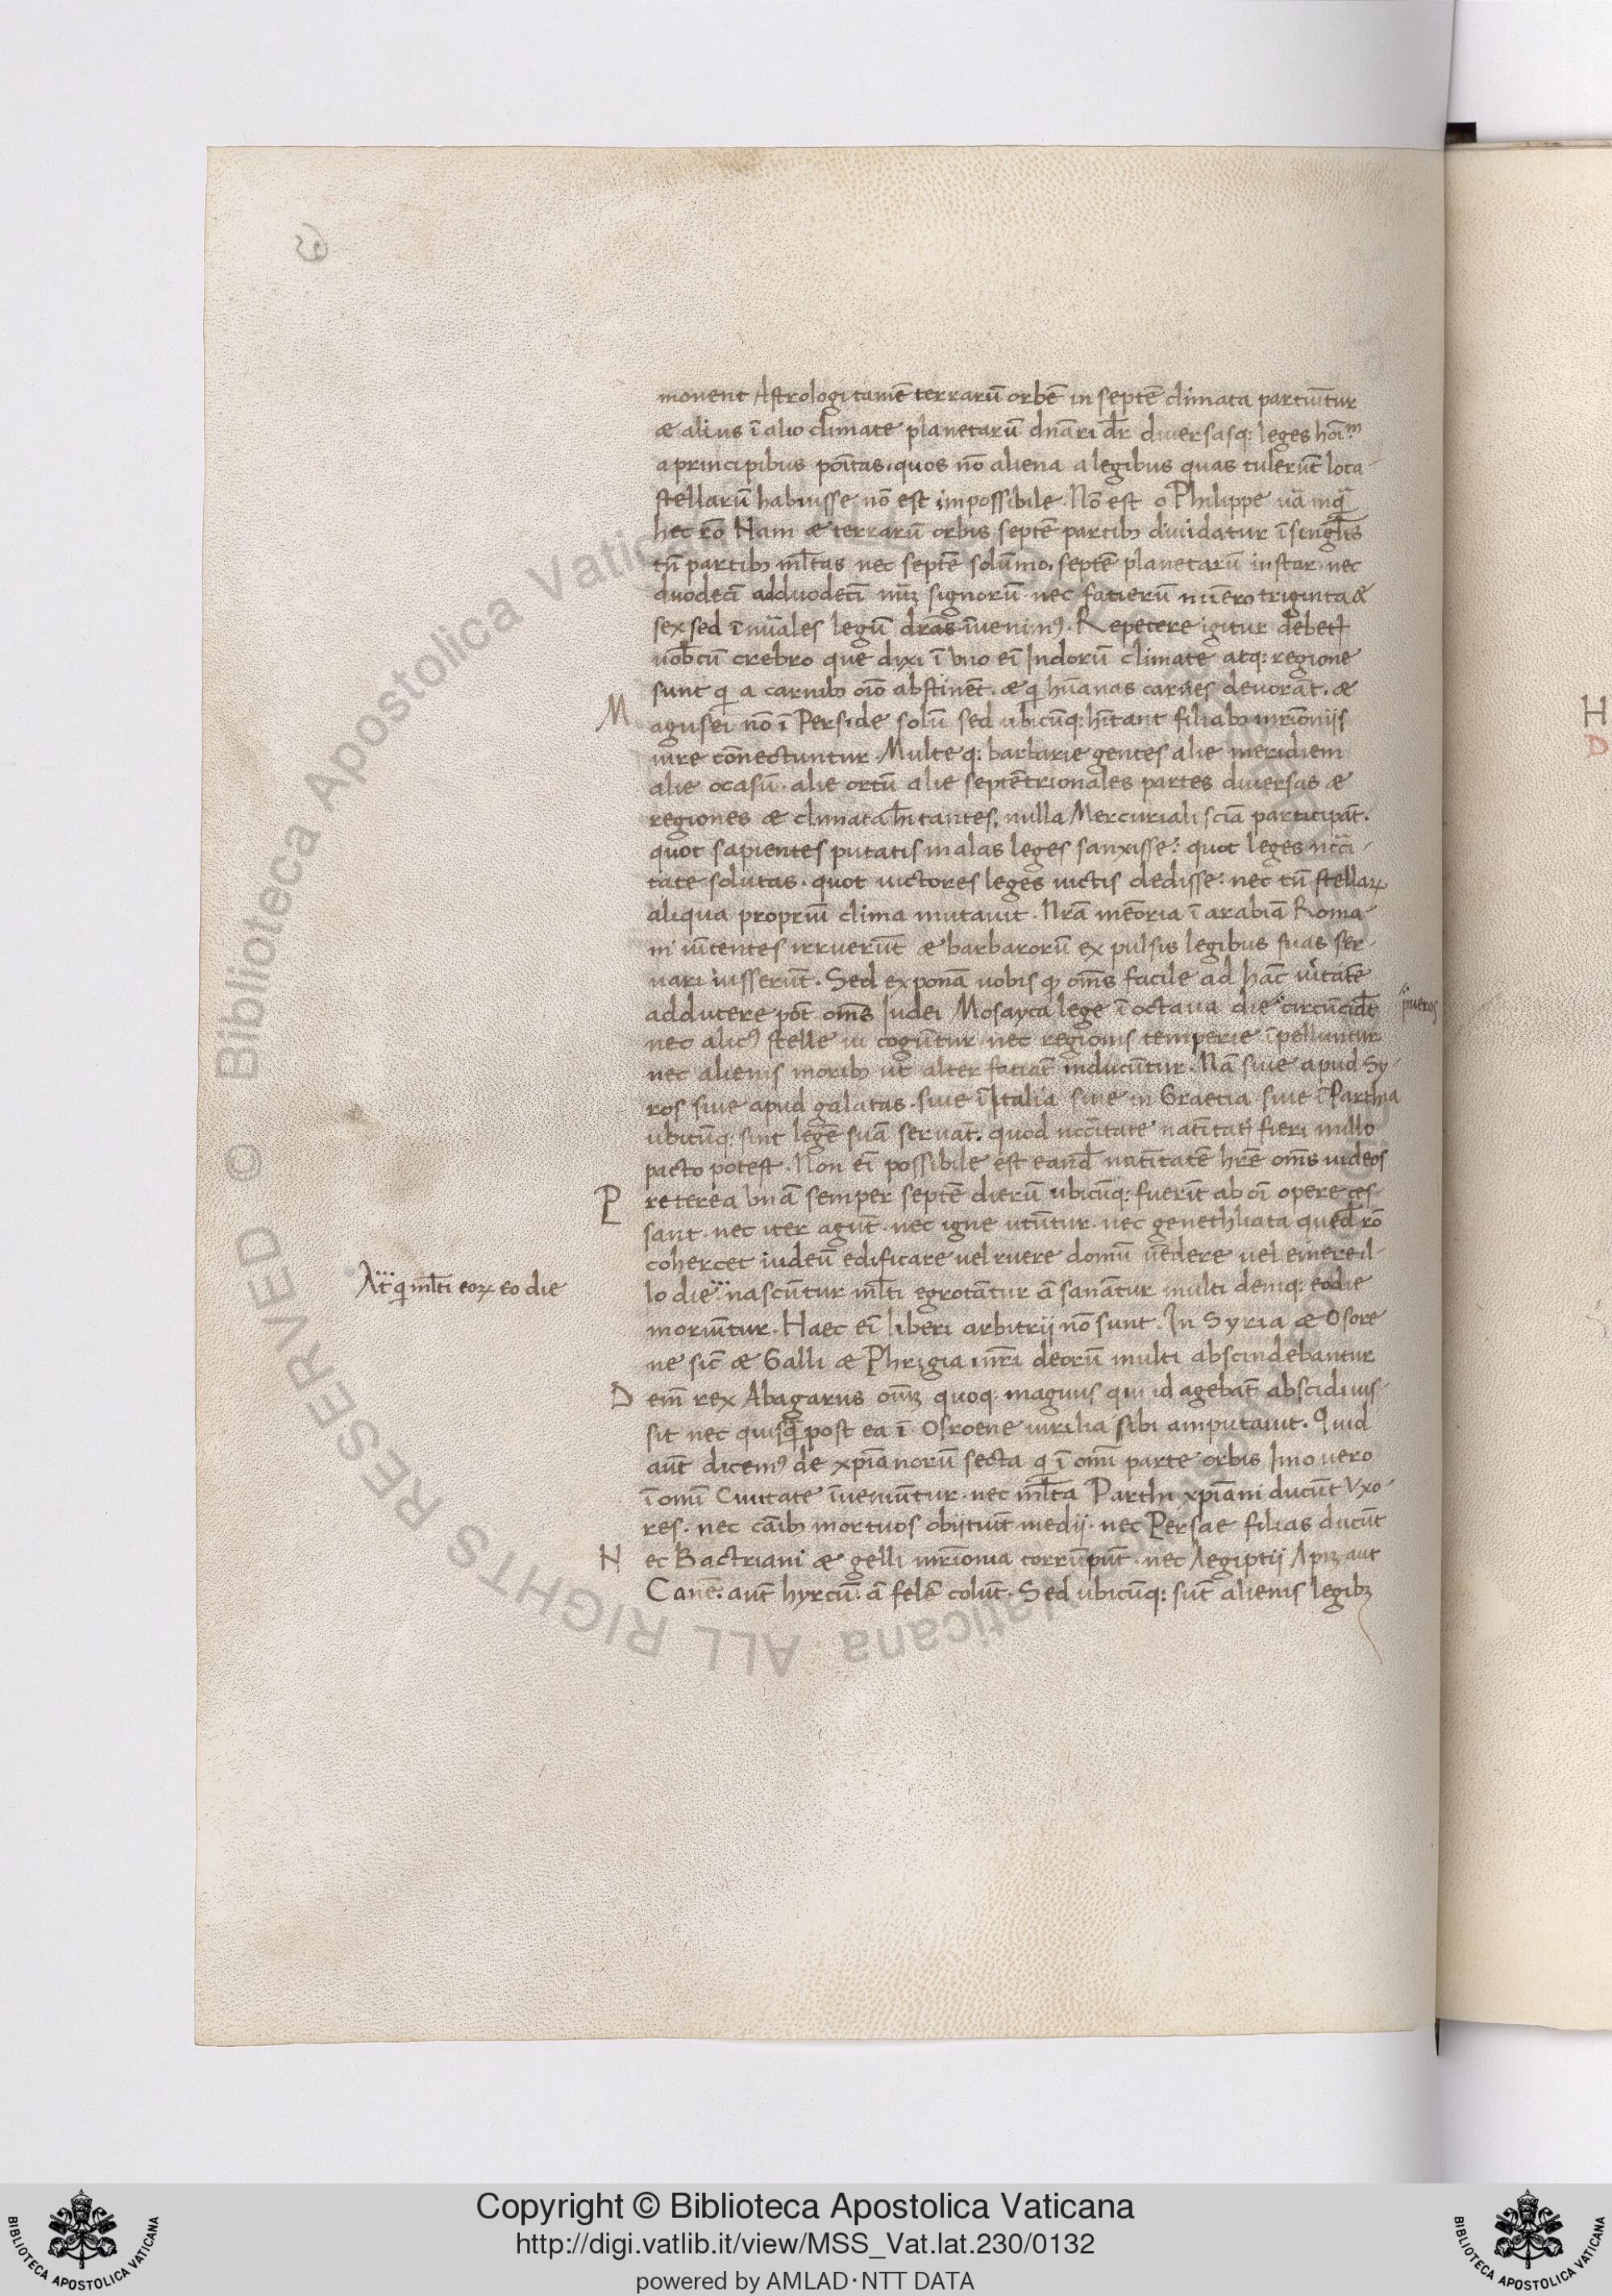 monent Astrologi tamē terrarū orbē in septē climata partiūtur
æ alius ī alio climate planetarū dnāri dr̄ diversasq: leges hoīm
a principibus poītas. quos nō aliena a legibus quas tulerūt loca
stellarū habuisse nō est impossibile. Nō est o Philippe uā inquā
hec rō Nam æ terrarū orbis septē partib; dividatur ī singlis
tn̄ partib; ml̄tas nec septē solūmo. septē planetarū instar. nec
duodecī ad duodecī nūȝ signorū. nec facierū nūero triginta &
sex sed īnūales legū dr̄as īvenim9. Repetere igitur debet
uobcū crebro que dixi ī vno eī Indorū climate atq: regione
sunt q̄ a carnib; oīo abstinēt. æ q̄ hūanas carnes devorāt. æ
Magusei nō ī Perside solū sed ubicūq: hītant filiab; mrīoniis
iure cōnectuntur. Multeq: barbarie gentes alie meridiem
alie ocasū. alie ortū alie septētrionales partes diversas æ
regiones æ climata hītantes, nulla Mercuriali sciā participāt.
quot sapientes putatis malas leges sanxisse: quot leges nccī-
tate solutas. quot uictores leges uictis dedisse. nec tn̄ stellarꝝ
aliqua propriū clima mutauit. Nr̄a mēoria ī arabiā Roma
ni uīcentes irruerūt æ barbarorū expulsis legibus suas ser-
uari iusserūt. Sed exponā uobis qđ om̄s facile ad hāc ūitatē
adducere pōt om̄s Iudei Mosayca lege ī octaua die circūcidt̄
pueros
nec alic9 stelle ui cogūtur nec regionis temperie īpelluntur
nec alienis morib; ut alter faciāt inducūtur. Nā siue apud Sy-
ros siue apud galatas. siue ī Italia siue in Graecia siue ī Parthia
ubicūq: sint legē suā seruāt. quod nccītate natītatꝭ fieri nullo
pacto potest. Non eī possibile est eand̄ natītatē hr̄e om̄s iudeos
Preterea vnā semper septē dierū ubicūq: fuerīt ab oī opere ces-
sant. nec iter agūt. nec igne utūtur. nec genethliaca qued̄ rō
cohercet iudeū edificare uel ruere domū uēdere uel emere il-
lo die nascūtur ml̄ti egrotātur ā sanātur multi demq: eo die
At q̄ ml̄ti eoꝝ eo die
moriūtur. Haec eī liberi arbitrij nō sunt. In Syria æ Osore
ne sic̄ æ Galli æ Phrigia mr̄i deorū multi abscindebantur
Dem̄ rex Abagarus oīuȝ quoq: magnus qui id agebāt abscidi ius-
sit nec quisq̄ post ea ī Osroene uirilia sibi amputauit. Quid
aūt dicem9 de xpīanorū secta q̄ ī omī parte orbis Imo uero
ī omī Ciuitate īueniūtur. nec ml̄ta Parthi xpīani ducūt vxo
res. nec cāib; mortuos obiitiūt medij. nec Persae filias ducūt
Nec Bactriani æ gelli mrīonia corrūpūt. nec Aegiptij Apiȝ aut
Canē. aut hyrcū. ā felē colūt. Sed ubicūq: sūt alienis legibȝ
Copyright © Biblioteca Apostolica Vaticana
http://digi.vatlib.it/view/MSS_Vat.lat.230/0132
powered by AMLAD·NTT DATA